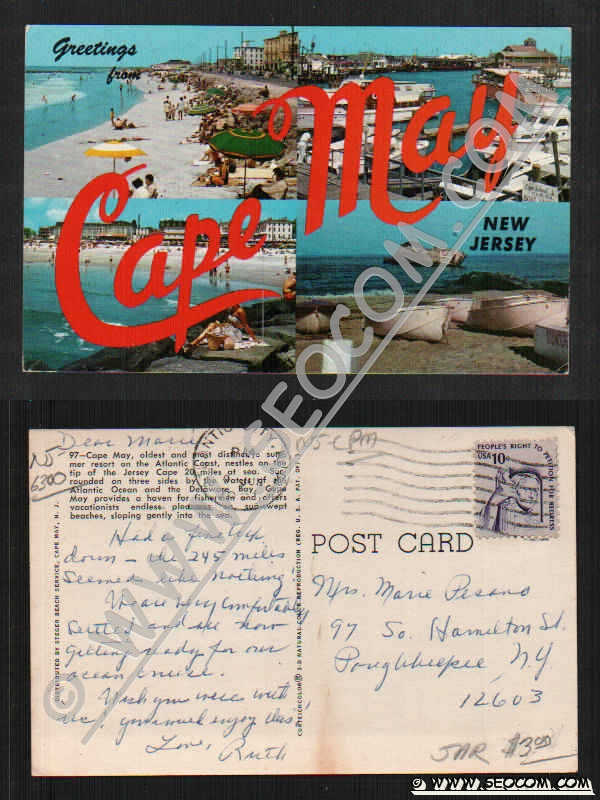 Greetings
from
Cape May
NEW
JERSEY
© WWW.SEOCOM.COM
Dear Marie
NJ-
6300
NJ-CPM
97—Cape May, oldest and most distinctive sum-
mer resort on the Atlantic Coast, nestles on the
tip of the Jersey Cape 20 miles at sea. Sur-
rounded on three sides by the waters of the
Atlantic Ocean and the Delaware Bay, Cape
May provides a haven for fishermen and offers
vacationists endless pleasure on sun-swept
beaches, sloping gently into the sea.
Had a fine trip
down - the 245 miles
seemed like nothing!
We are very comfortably
settled and are now
getting ready for our
ocean cruise.
Wish you were with
us, you would enjoy this!
Love,
Ruth
DISTRIBUTED BY STEGER BEACH SERVICE, CAPE MAY, N. J.
CURTEICHCOLOR® 3-D NATURAL COLOR REPRODUCTION (REG. U. S. A. PAT. OFF.)
PEOPLE'S RIGHT TO PETITION FOR REDRESS
USA 10c
POST CARD
Mrs. Marie Pesano
97 So. Hamilton St.
Poughkeepsie, N.Y.
12603
JAR $3.00
© WWW.SEOCOM.COM